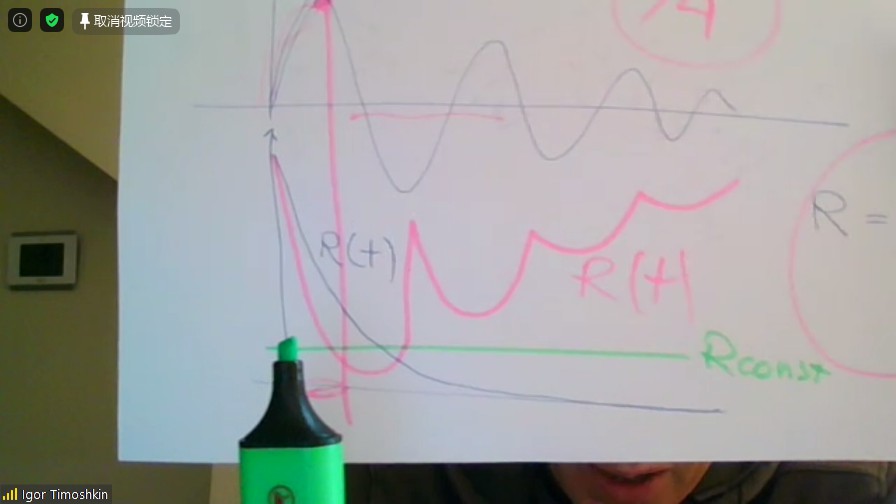 取消视频锁定
/4
R(t)
R =
R(t)
Rconst
Igor Timoshkin